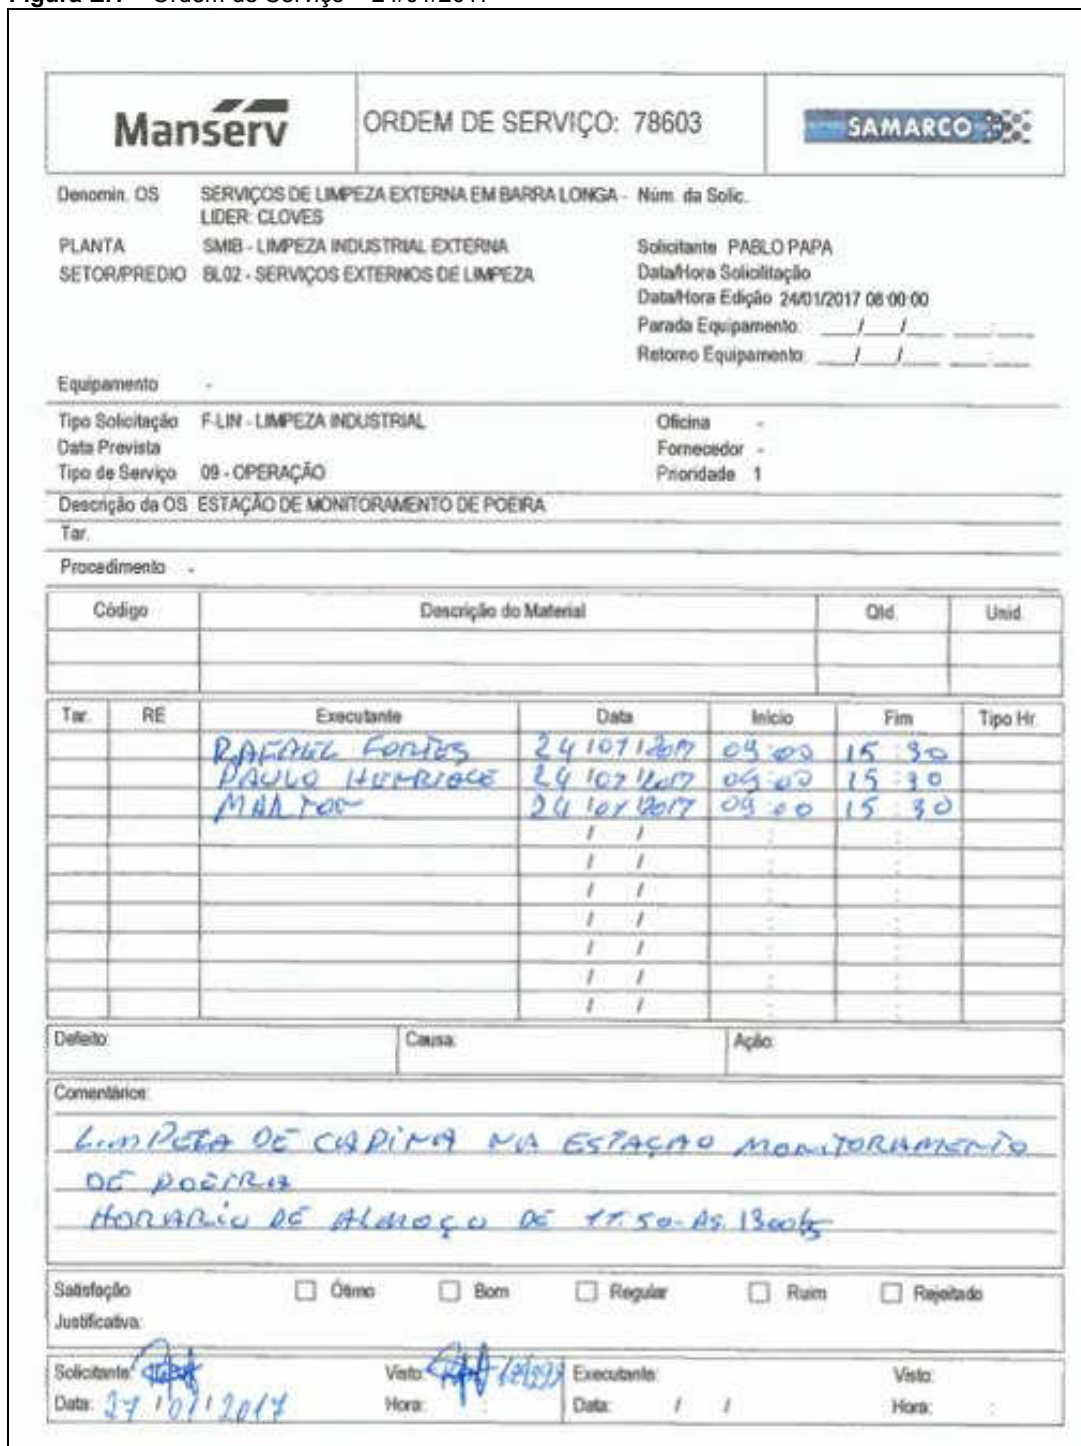 Figura 2.1 – Ordem de Serviço – 24/01/2017
Manserv
ORDEM DE SERVIÇO: 78603
SAMARCO
Denomin. OS SERVIÇOS DE LIMPEZA EXTERNA EM BARRA LONGA - Núm. da Solic..
LIDER: CLOVES
PLANTA SMIB - LIMPEZA INDUSTRIAL EXTERNA Solicitante PABLO PAPA
SETOR/PREDIO BL02 - SERVIÇOS EXTERNOS DE LIMPEZA Data/Hora Soliolitação
Data/Hora Edição 24/01/2017 08:00:00
Parada Equipamento: / / :
Retorno Equipamento: / / :
Equipamento -
Tipo Solicitação F-LIN - LIMPEZA INDUSTRIAL Oficina -
Data Prevista Fornecedor -
Tipo de Serviço 09 - OPERAÇÃO Prioridade 1
Descrição da OS ESTAÇÃO DE MONITORAMENTO DE POEIRA
Tar.
Procedimento -
Código Descrição do Material Qtd. Unid.
Tar. RE Executante Data Início Fim Tipo Hr.
RAFAEL FONTES 24/01/2017 09:00 15:30
PAULO HENRIQUE 24/01/2017 09:00 15:30
MARLTON 24/01/2017 09:00 15:30
/ / : :
/ / : :
/ / : :
/ / : :
/ / : :
/ / : :
/ / : :
Defeito: Causa: Ação:
Comentários:
LIMPEZA DE CAPINA NA ESTAÇAO MONITORAMENTO
DE POEIRA
HORARIO DE ALMOÇO DE 11:50-AS. 1300hs
Satisfação Ótimo Bom Regular Ruim Rejeitado
Justificativa:
Solicitante: Visto: Executante: Visto:
Data: 27/01/2017 Hora: : Data: / / Hora: :